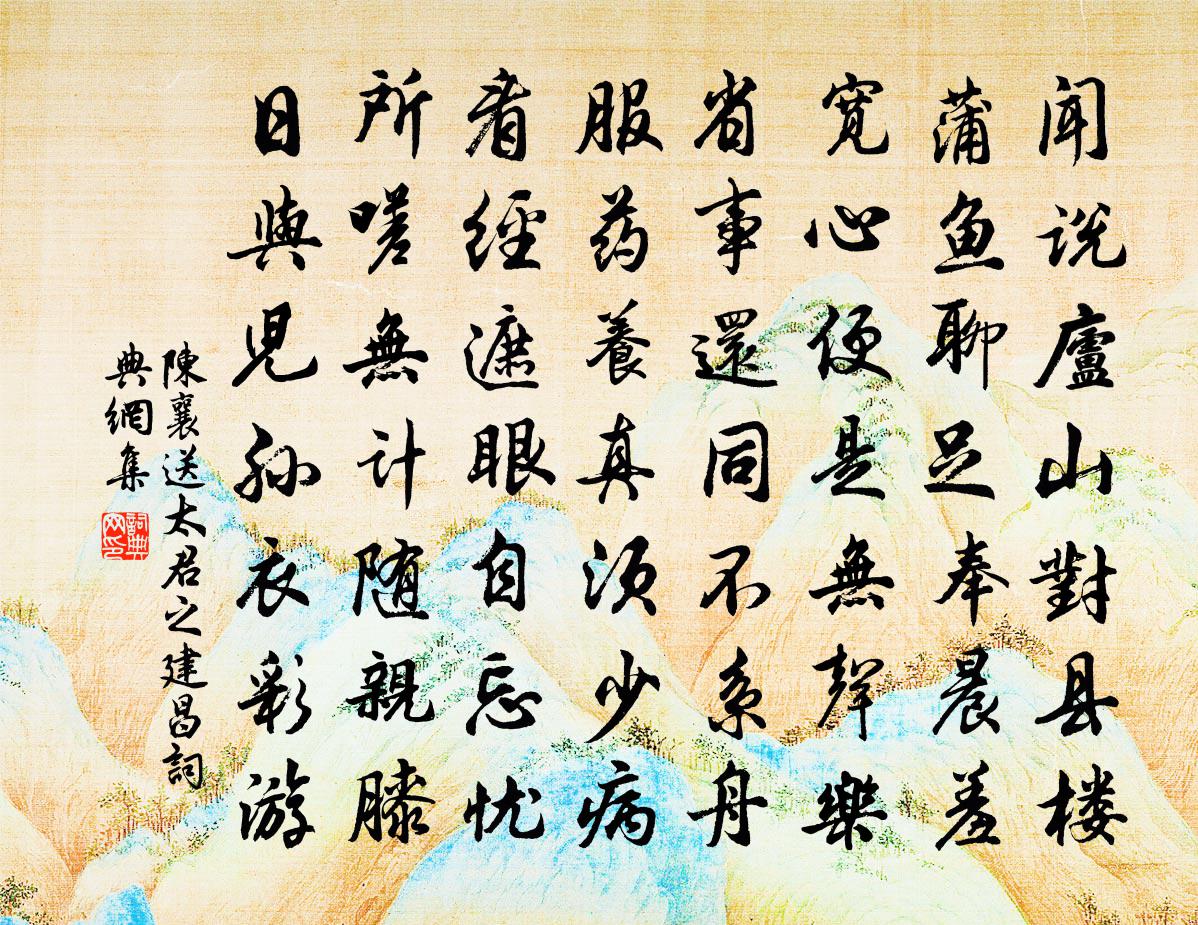 闻说廬山對县楼
蒲鱼聊足奉晨羞
宽心便是無聲樂
省事還同不系舟
服药養真须少病
看經遮眼自忘忧
所嗟無计随親膝
日與児孙衣彩游
陳襄送太君之建昌詞
典網集
詞典
网印